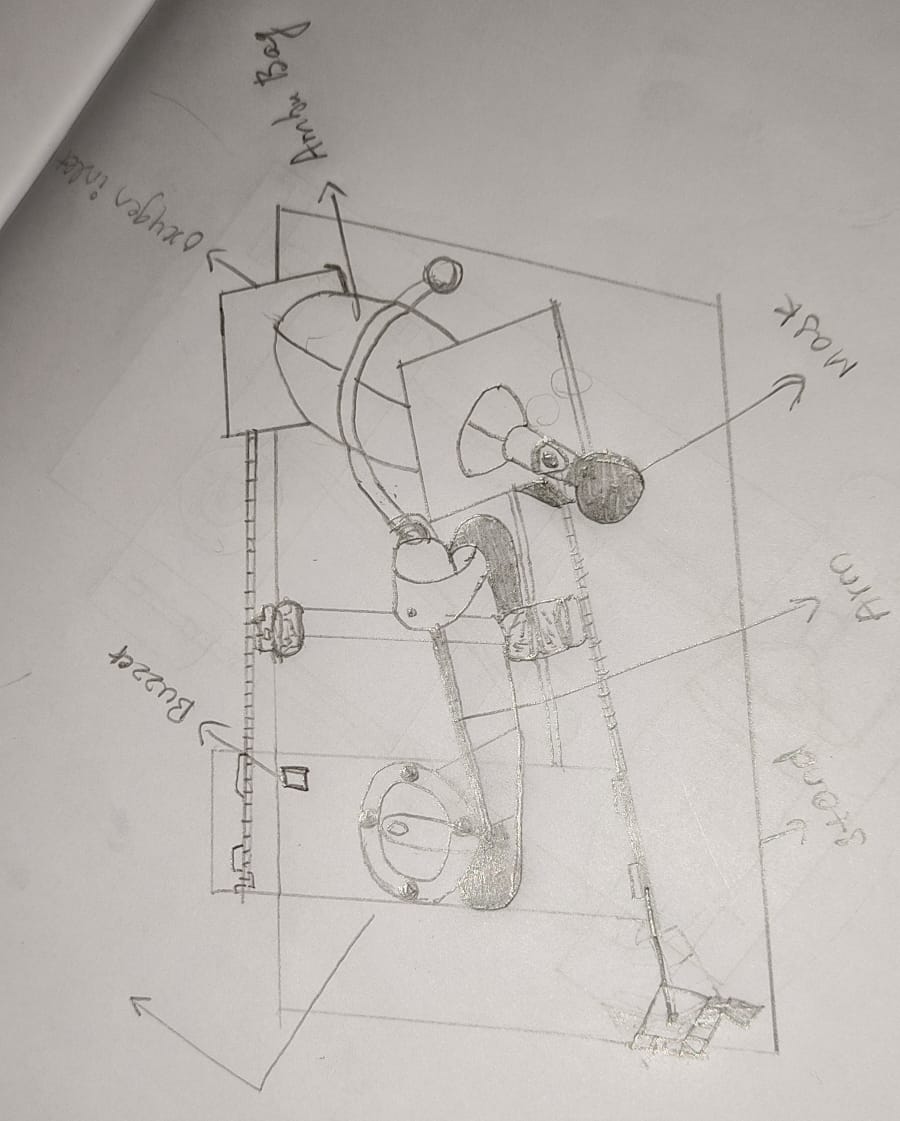 Buzzer
oxygen inlet
Ambu Bag
stand
Arm
Mask